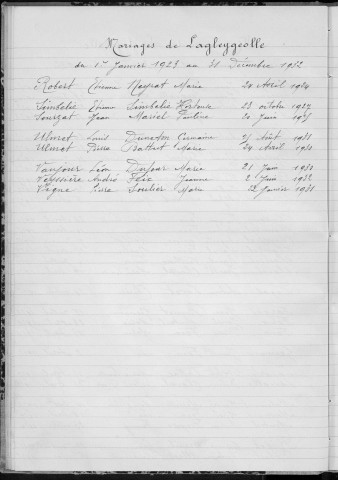 Mariages de Lagleygeolle
du 1er Janvier 1923 au 31 Décembre 1932
Robert Etienne Neyrat Marie 24 Avril 1924
Simbelie Etienne Simbelie Hortense 23 octobre 1927
Sourzat Jean Maviel Pauline 20 Juin
Ulmet Louis Duneton Germaine Août 1931
Ulmet Pierre Marie 24 Avril 1930
Vaujour Léon Dufour Marie 21 Juin 1930
Veyssière André Flix Jeanne 2 Juin 1932
Vigne Pierre Soulier Marie 12 Janvier 1931